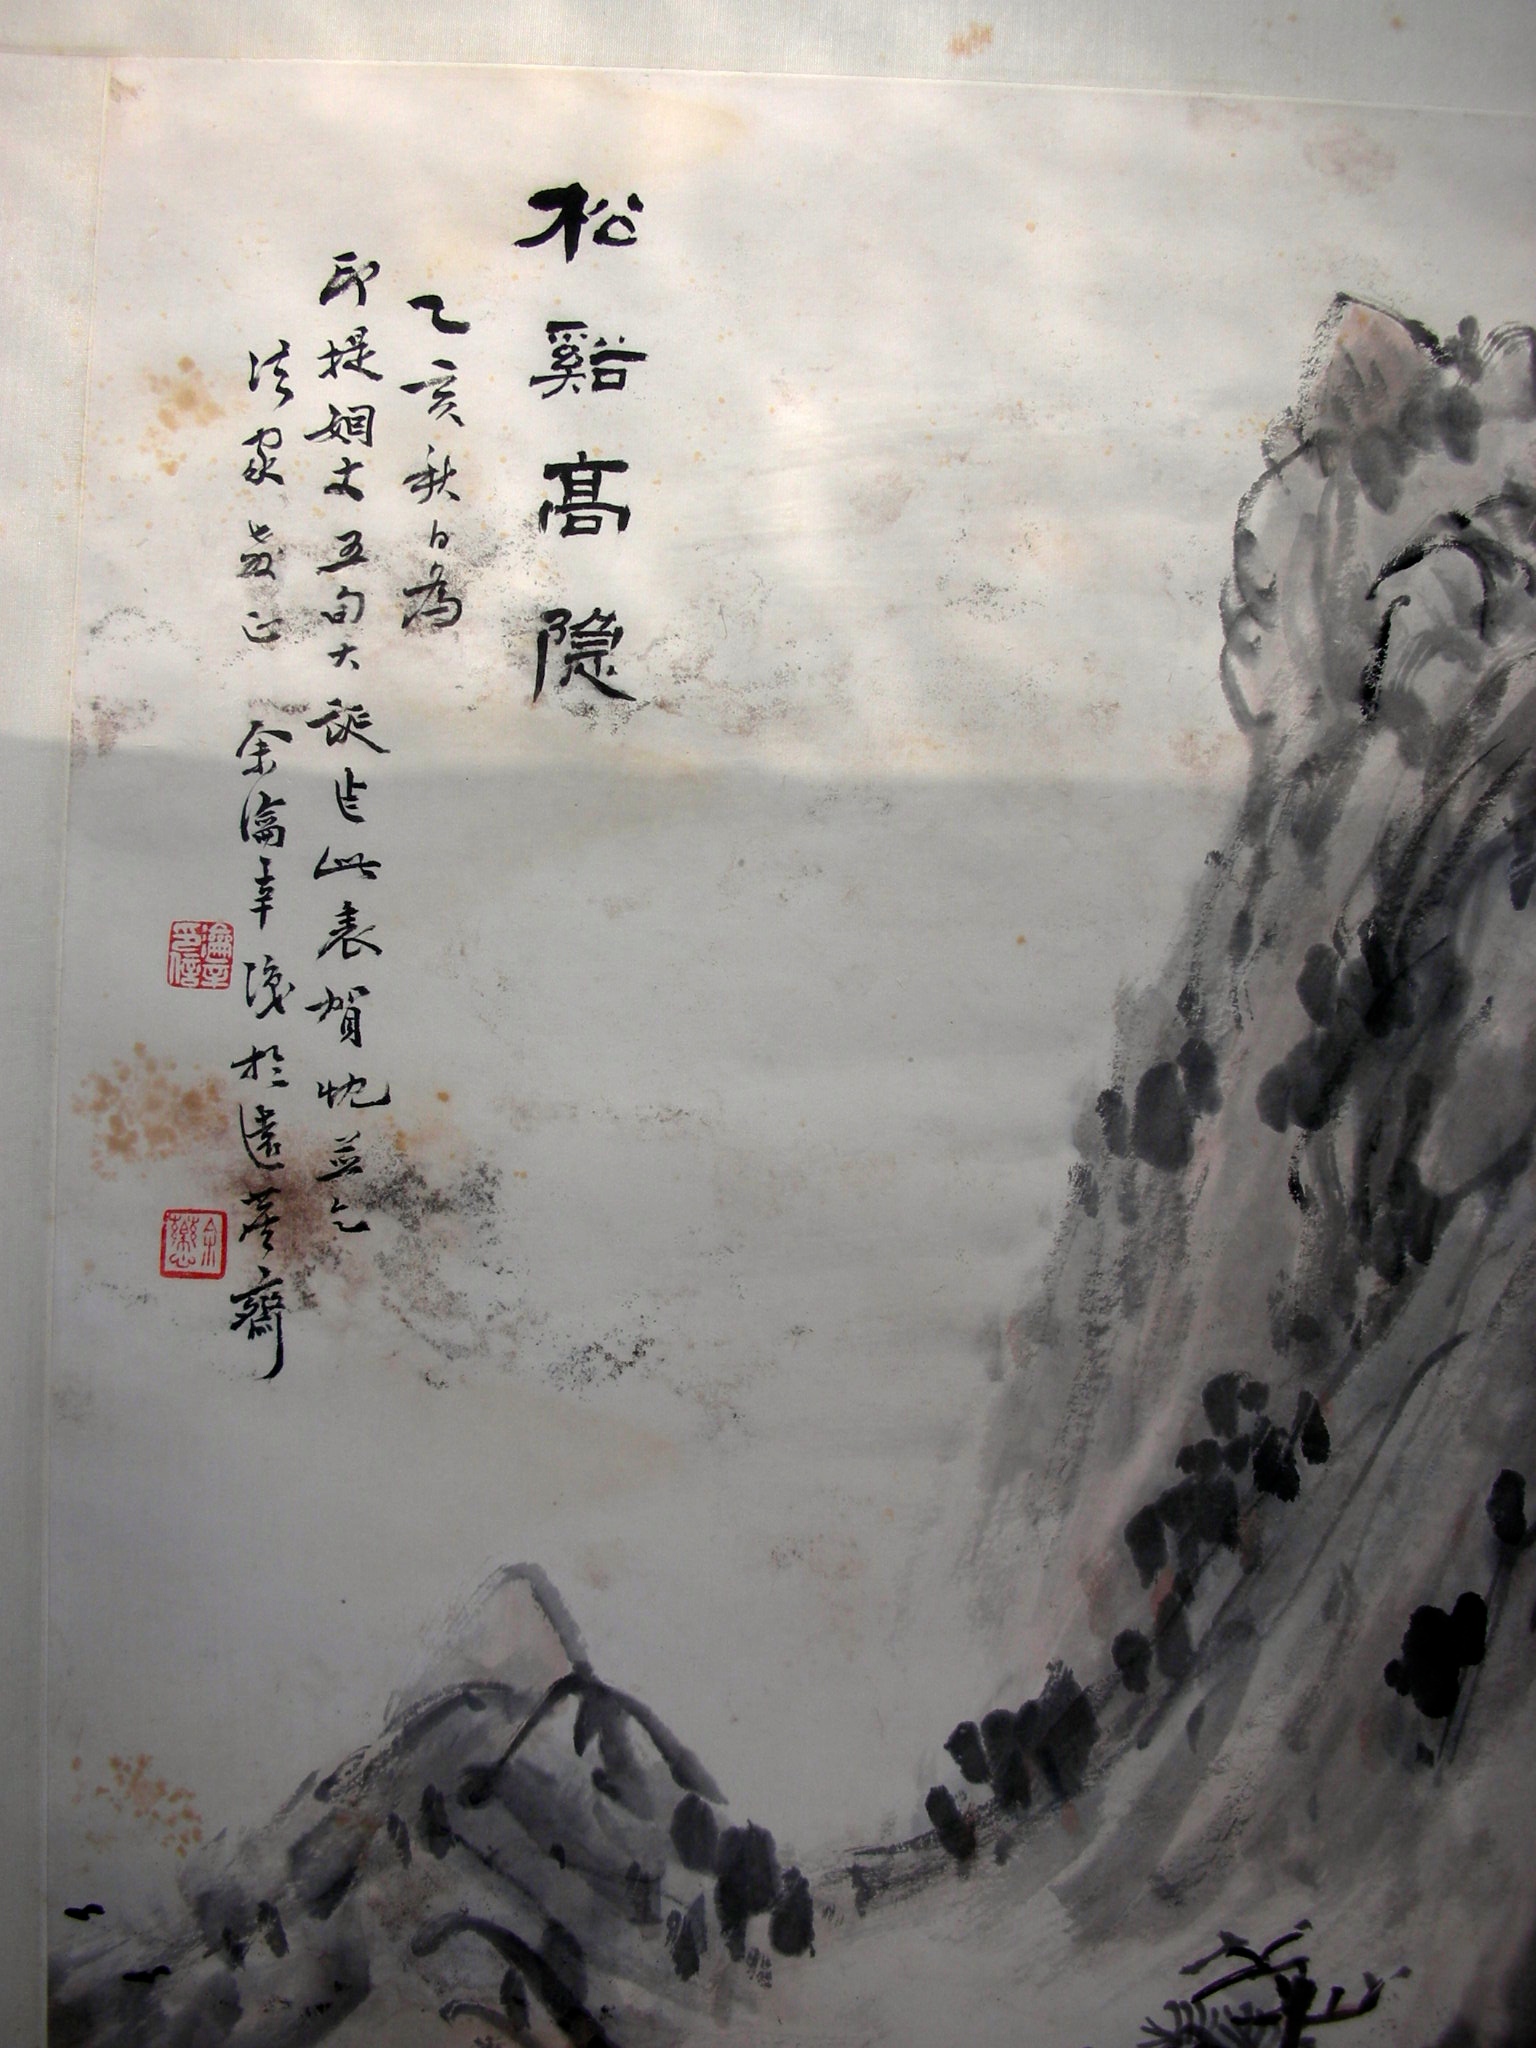 松谿高隱
乙亥秋日為
印提姻丈五旬大誕作此表賀忱並乞
法家教正 余瀹辛 於遠 齋